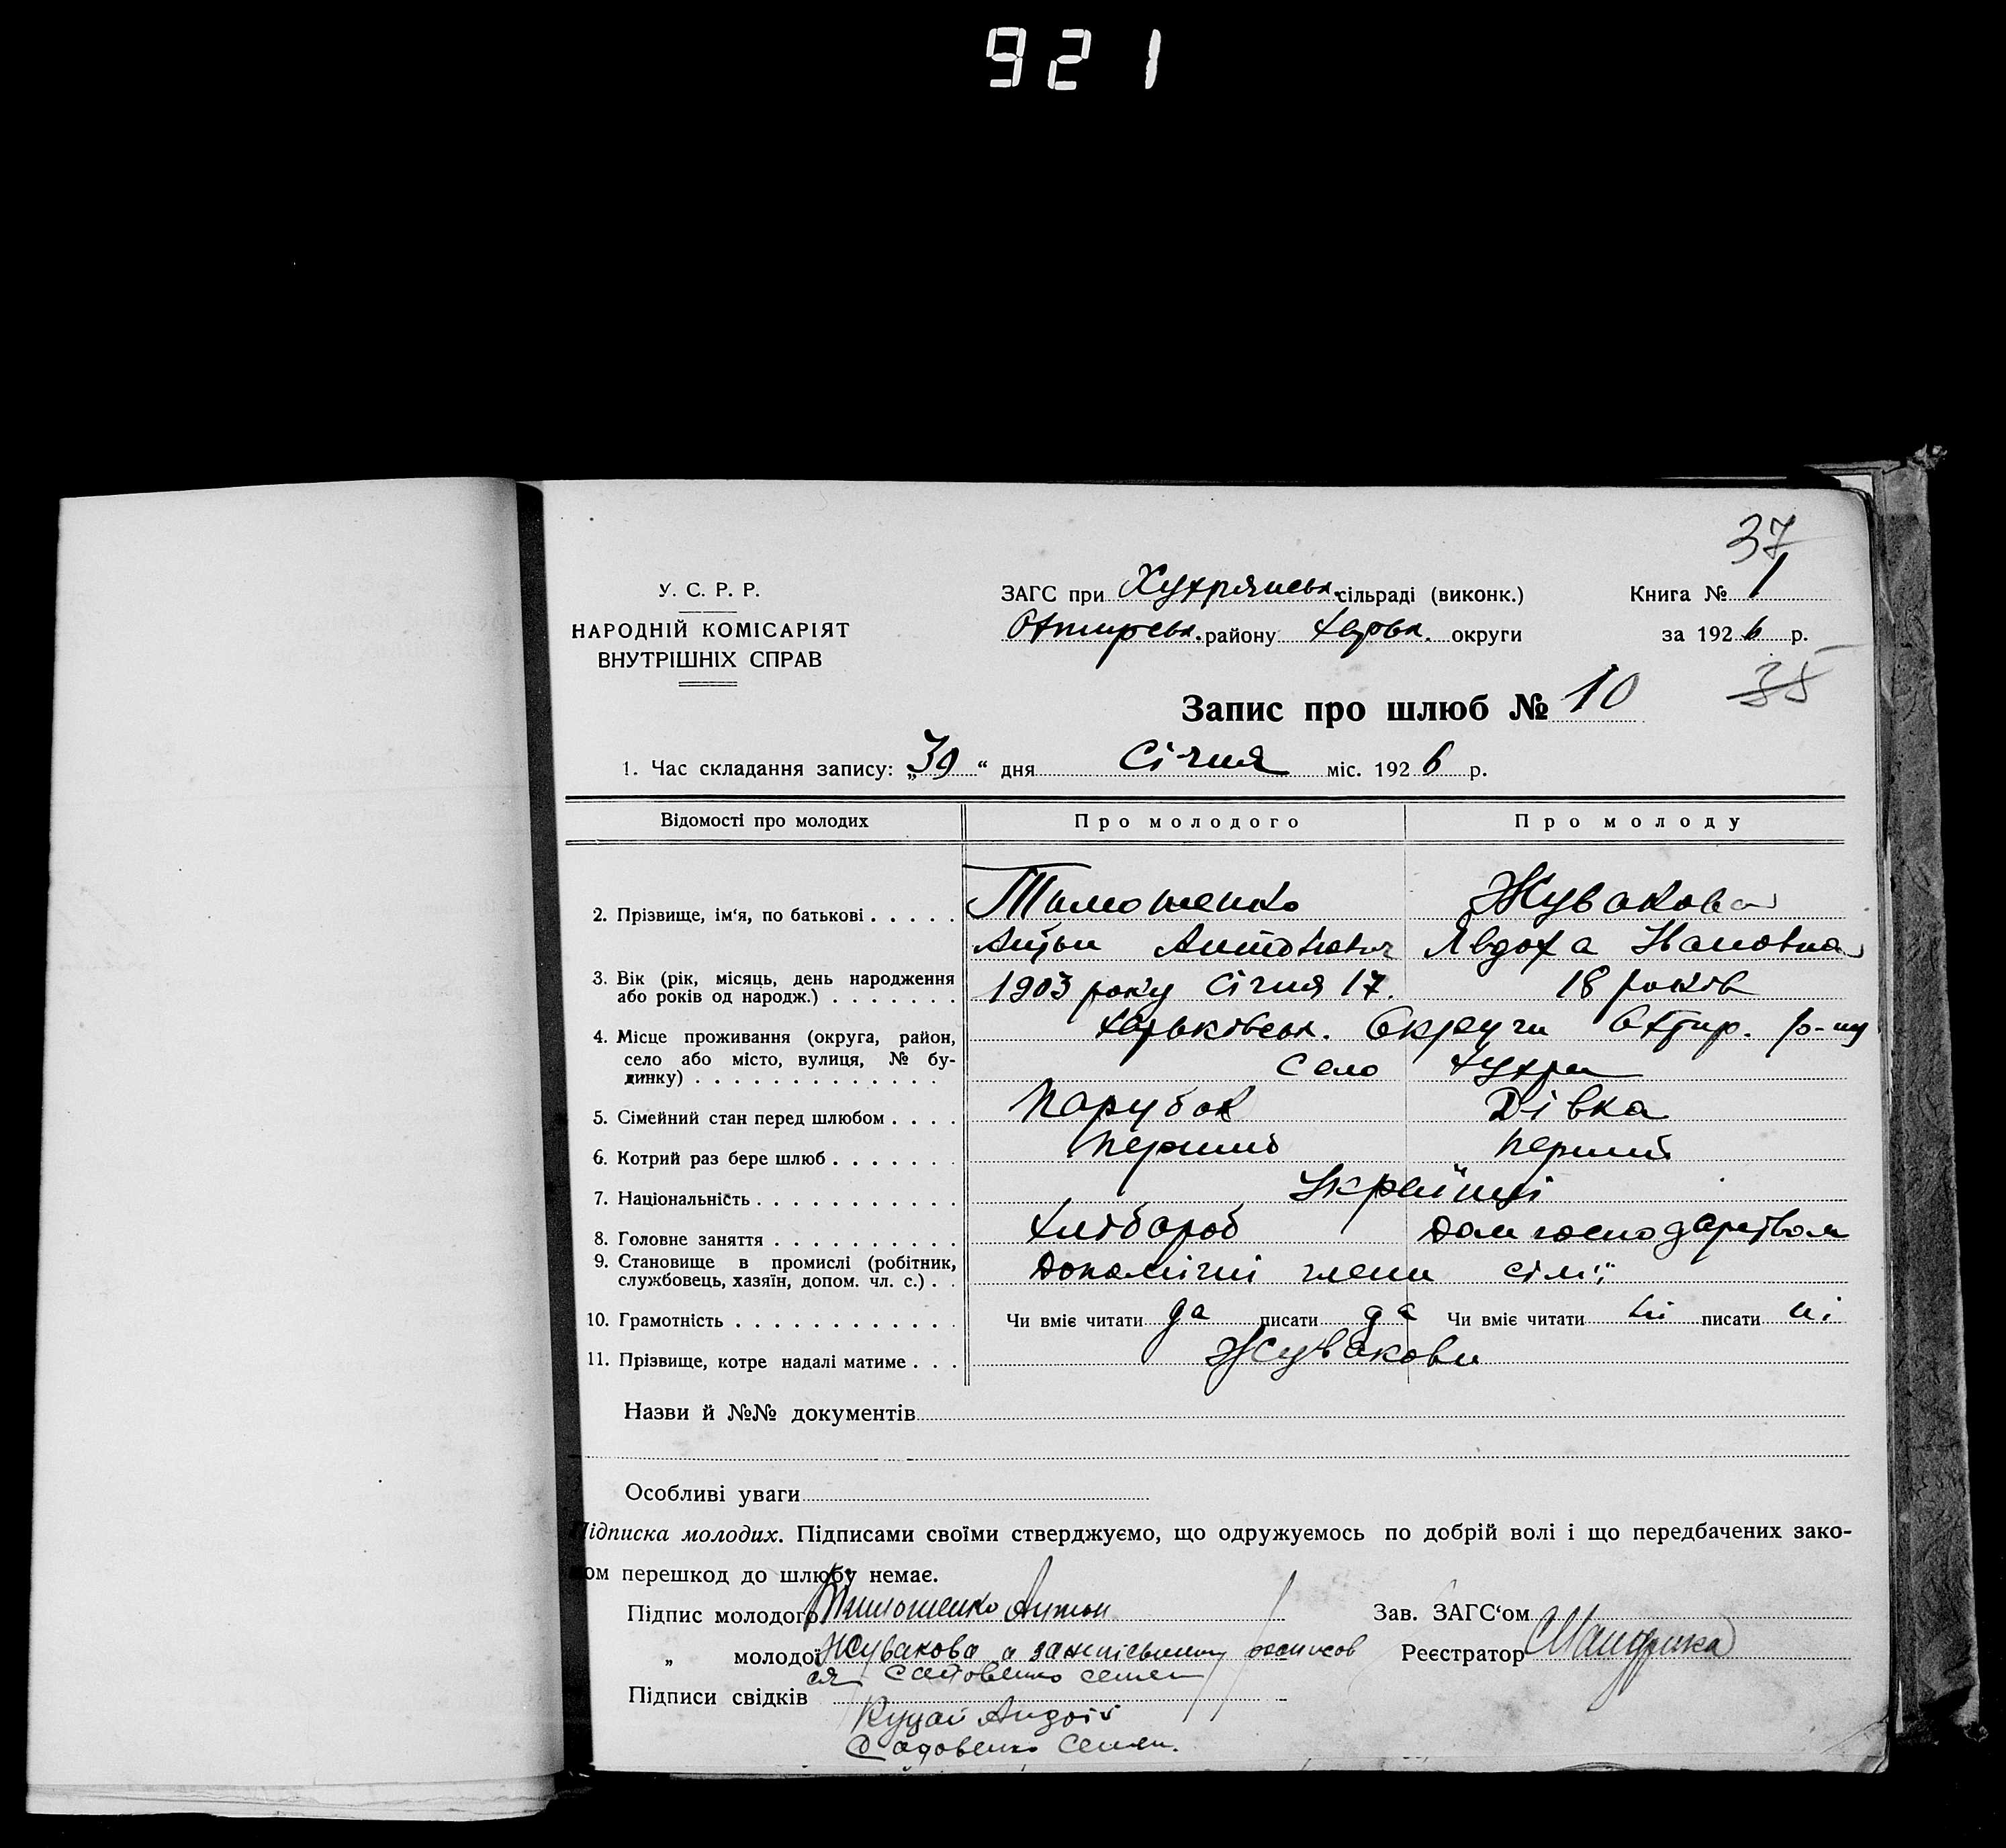 921
37
У. С. Р. Р.
НАРОДНІЙ КОМІСАРІЯТ
ВНУТРІШНІХ СПРАВ
ЗАГС при Хухрянськ. сільраді (виконк.)
Охтирськ. району Харьк. округи
Книга № 1
за 1926 р.
35
Запис про шлюб № 10
1. Час складання запису: „30“ дня Січня міс. 1926 р.
Відомості про молодих Про молодого Про молоду
2. Прізвище, ім‘я, по батькові . . . . . Тимошенко Жувакова
Антон Антонович Явдоха Ивановна
3. Вік (рік, місяць, день народження
або років од народж.) . . . . . . . 1903 року Січня 17. 18 років
4. Місце проживання (округа, район,
село або місто, вулиця, № бу-
динку) . . . . . . . . . . . . . Харьківськ. Округи Охтир. р-ну
Село Хухри
5. Сімейний стан перед шлюбом . . . . Парубок Дівка
6. Котрий раз бере шлюб . . . . . . . Перший Перший
7. Національність . . . . . . . . . . . Українці
8. Головне заняття . . . . . . . . . . Хлібороб Дом господарством
9. Становище в промислі (робітник,
службовець, хазяїн, допом. чл. с.) . . Допомічні члени сімї
10. Грамотність . . . . . . . . . . . . Чи вміє читати да писати да Чи вміє читати ні писати ні
11. Прізвище, котре надалі матиме . . . Жувакови
Назви й №№ документів
Особливі уваги
Підписка молодих. Підписами своїми стверджуємо, що одружуємось по добрій волі і що передбачених зако-
ном перешкод до шлюбу немає.
Підпис молодого Тимошенко Антон
Зав. ЗАГС‘ом
„ молодої Жувакова а за
ся Садовенко Семен
Реєстратор
Підписи свідків
Куцай Андрій
Садовенко Семен.